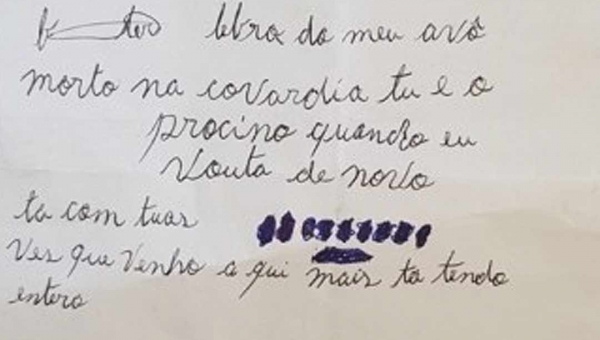 lebra do meu avô
morto na covardia tu e o
procino quando eu
vouta de novo
ta com tuas
Ves que venho a qui mais ta tendo
entero